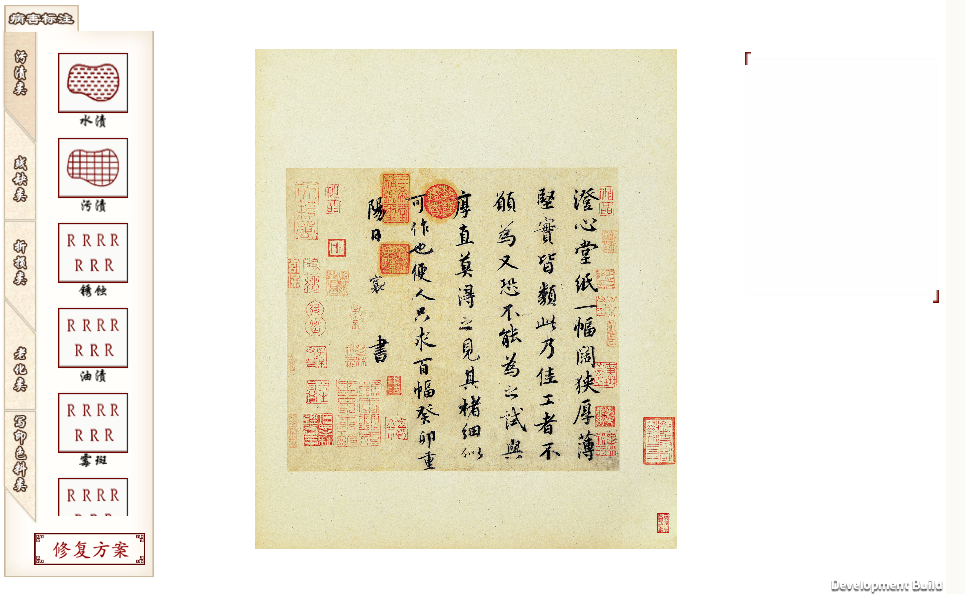 病害标注
污渍类
残缺类
折损类
老化类
写印色料类
水渍
污渍
R R R R
R R R
锈蚀
R R R R
R R R
油渍
R R R R
R R R
霉斑
R R R R
修复方案
澄心堂紙一幅闊狹厚薄
堅實皆類此乃佳工者不
願為又恐不能為之試與
厚直莫得之見其楮細似
可作也便人只求百幅癸卯重
陽日
襄
書
Development Build